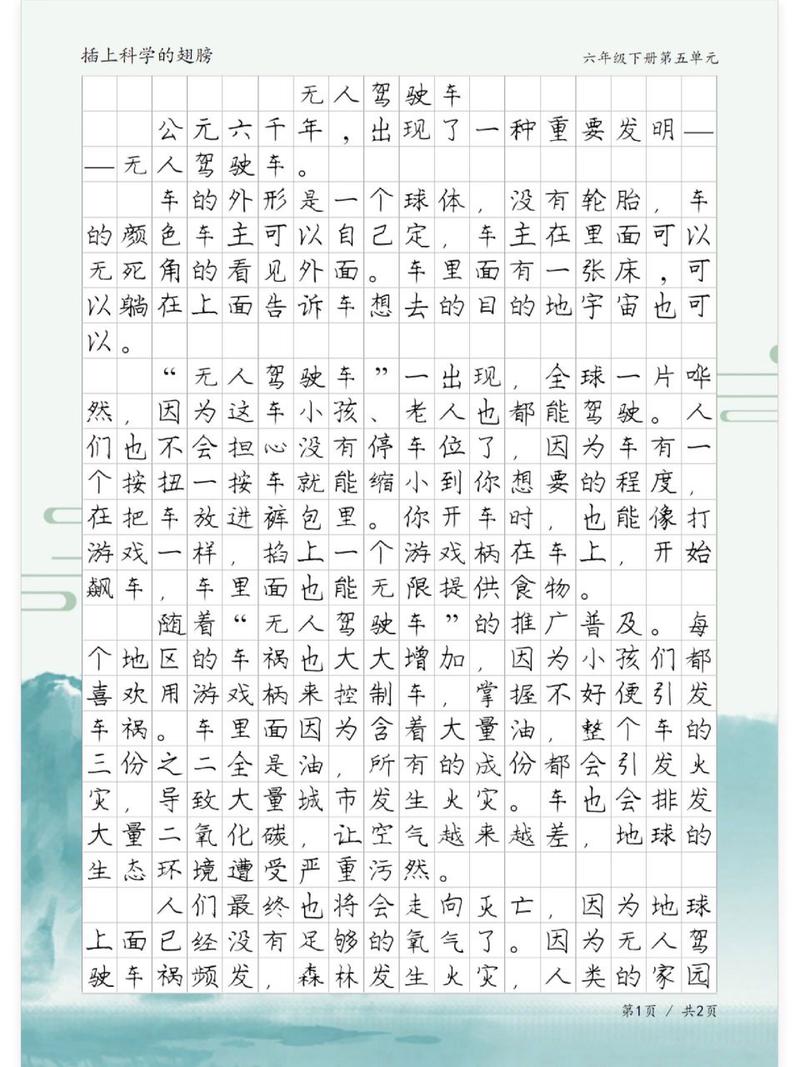 插上科学的翅膀
六年级下册第五单元
无人驾驶车
公元六千年，出现了一种重要发明—
—无人驾驶车。
车的外形是一个球体，没有轮胎，车
的颜色车主可以自己定，车主在里面可以
无死角的看见外面。车里面有一张床，可
以躺在上面告诉车想去的目的地宇宙也可
以。
“无人驾驶车”一出现，全球一片哗
然，因为这车小孩、老人也都能驾驶。人
们也不会担心没有停车位了，因为车有一
个按扭一按车就能缩小到你想要的程度，
在把车放进裤包里。你开车时，也能像打
游戏一样，掐上一个游戏柄在车上，开始
飙车，车里面也能无限提供食物。
随着“无人驾驶车”的推广普及。每
个地区的车祸也大大增加，因为小孩们都
喜欢用游戏柄来控制车，掌握不好便引发
车祸。车里面因为含着大量油，整个车的
三份之二全是油，所有的成份都会引发火
灾，导致大量城市发生火灾。车也会排发
大量二氧化碳，让空气越来越差，地球的
生态环境遭受严重污然。
人们最终也将会走向灭亡，因为地球
上面已经没有足够的氧气了。因为无人驾
驶车祸频发，森林发生火灾，人类的家园
第1页 / 共2页